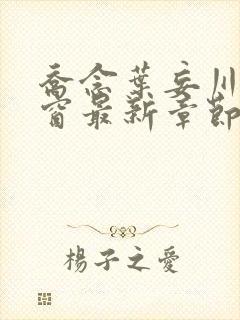 喬念葉妄川
窗最新章節
楊子之愛